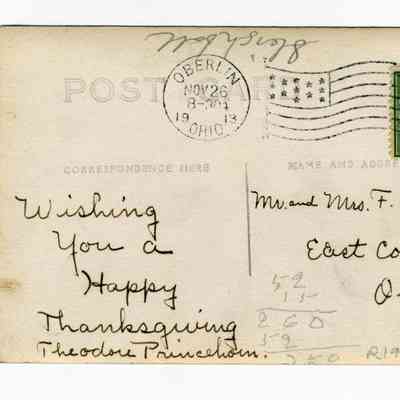 POST CAR
OBERLIN
NOV 26
8-30A
1913
OHIO
CORRESPONDENCE HERE
NAME AND ADDRE
Wishing
You a
Happy
Thanksgiving
Theodore Princehorn.
Mr. and Mrs. F.
East Co
O
52
15
260
52
780
R19